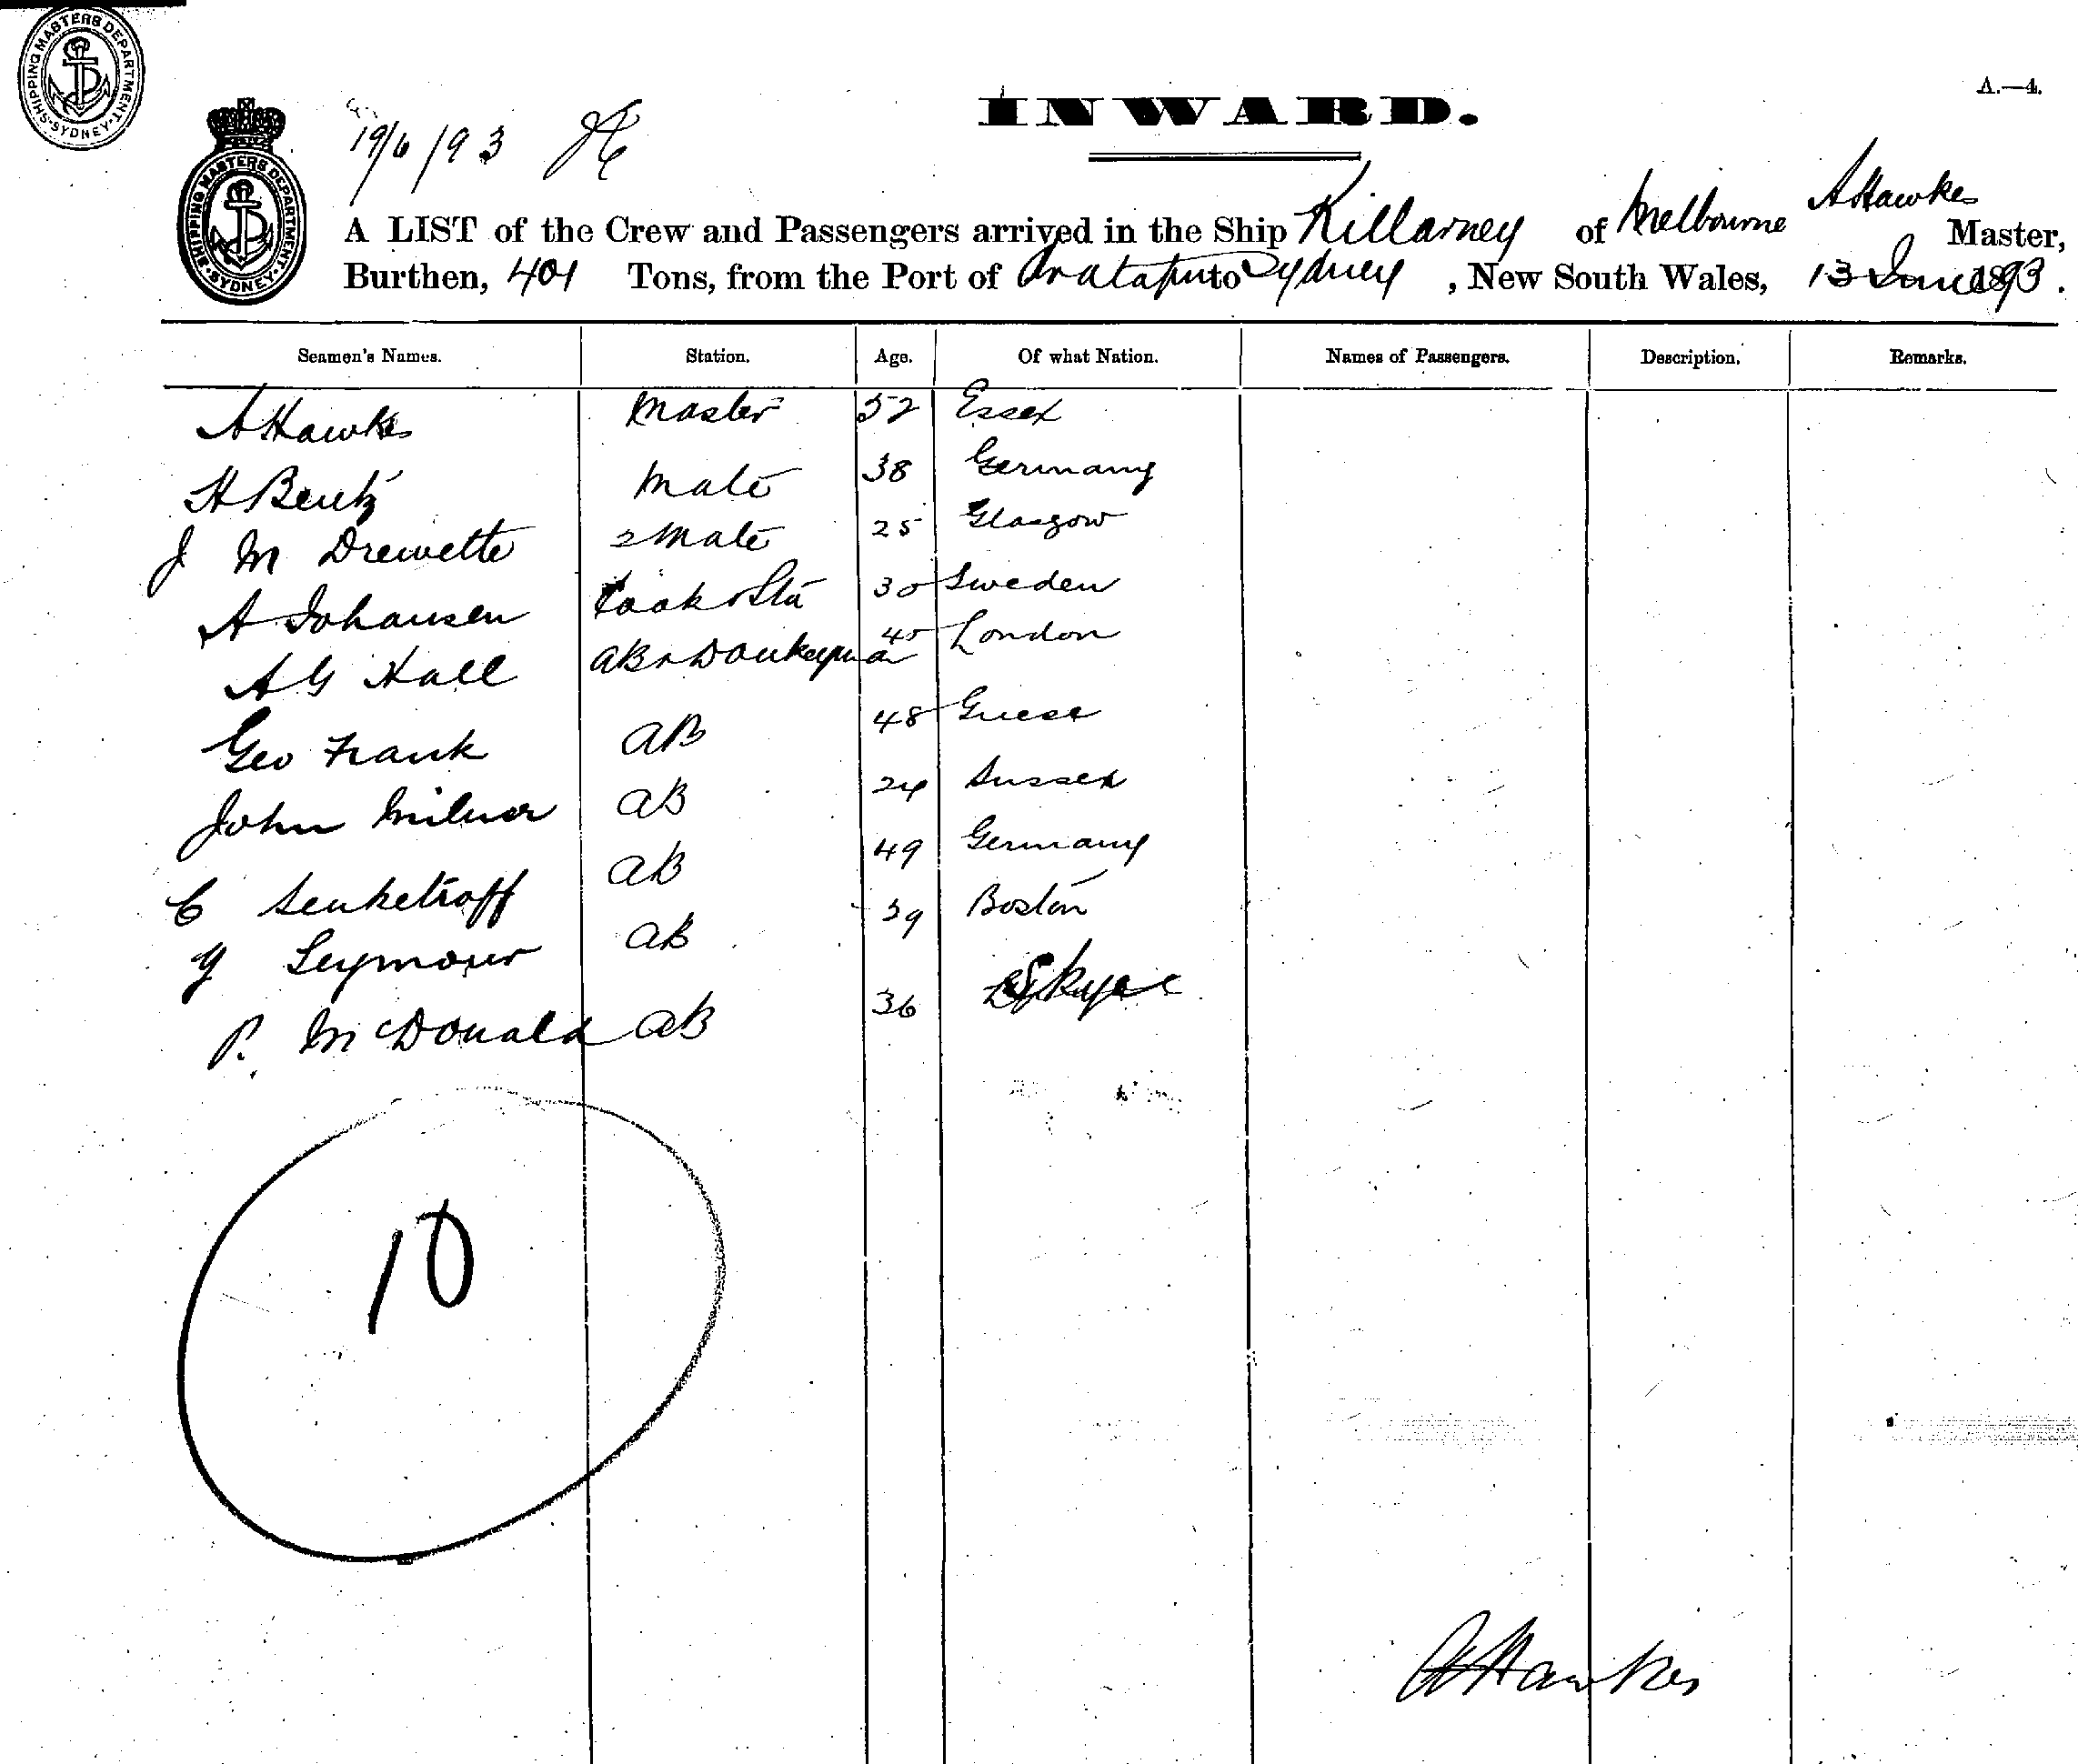 SHIPPING MASTERS DEPARTMENT · SYDNEY ·
A.—4.
INWARD.
19/6/93
SHIPPING MASTERS DEPARTMENT · SYDNEY ·
A Hawkes
A LIST of the Crew and Passengers arrived in the Ship Killarney of Melbourne Master,
Burthen, 401 Tons, from the Port of to Sydney, New South Wales, 13 June 1893.
Seamen's Names. Station. Age. Of what Nation. Names of Passengers. Description. Remarks.
A Hawkes Master 52 Essex
H Bentz Mate 38 Germany
J M Drewette 2 Mate 25 Glasgow
A Johansen Cook & Std 30 Sweden
A G Hall AB & Donkeyman 40 London
Geo Frank AB 48 Greece
John Milner AB 24 Sussex
C AB 49 Germany
Y Seymour AB 39 Boston
P. McDonald AB 36 Skye
10
A Hawkes